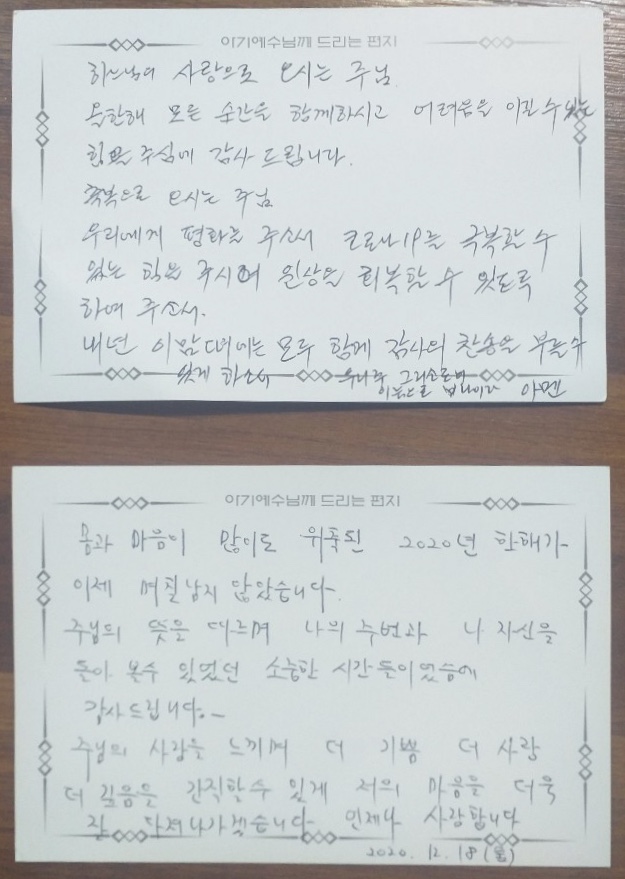 아기예수님께 드리는 편지
하느님의 사랑으로 오시는 주님.
올한해 모든 순간을 함께하시고 어려움을 이길 수 있는
힘을 주심에 감사 드립니다.
축복으로 오시는 주님
우리에게 평화를 주소서 코로나19를 극복할 수
있는 힘을 주시어 일상을 회복할 수 있도록
하여 주소서.
내년 이맘때에는 모두 함께 감사의 찬송을 부를수
있게 하소서 우리주 그리스도의
이름으로 비나이다 아멘
아기예수님께 드리는 편지
몸과 마음이 많이도 위축된 2020년 한해가
이제 며칠남지 않았습니다.
주님의 뜻을 따르며 나의 주변과 나 자신을
돌아 볼수 있었던 소중한 시간들이었슴에
감사드립니다.
주님의 사랑을 느끼며 더 기쁨 더 사랑
더 깊음을 간직할수 있게 저의 마음을 더욱
잘 다져나가겠습니다. 언제나 사랑합니다
2020. 12. 18 (金)